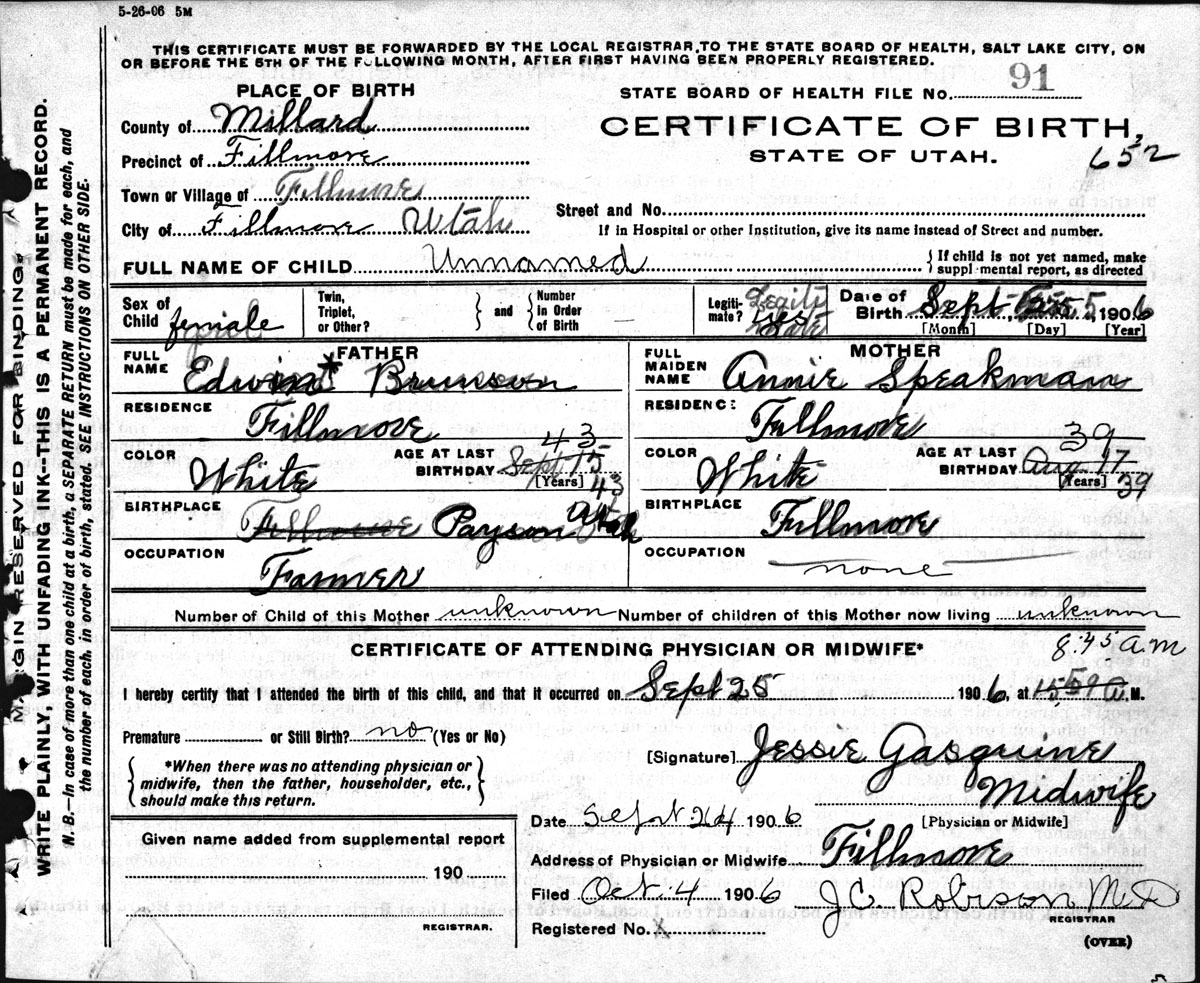 5-26-06 5M
THIS CERTIFICATE MUST BE FORWARDED BY THE LOCAL REGISTRAR TO THE STATE BOARD OF HEALTH, SALT LAKE CITY, ON
OR BEFORE THE 5TH OF THE FOLLOWING MONTH, AFTER FIRST HAVING BEEN PROPERLY REGISTERED.
PLACE OF BIRTH
STATE BOARD OF HEALTH FILE No. 91
County of Millard
CERTIFICATE OF BIRTH,
Precinct of Fillmore
STATE OF UTAH. 652
Town or Village of Fillmore
City of Fillmore Utah
Street and No.
If in Hospital or other Institution, give its name instead of Street and number.
FULL NAME OF CHILD Unnamed
If child is not yet named, make
supplemental report, as directed
Sex of
Child female
Twin,
Triplet,
or Other?
and
Number
in Order
of Birth
Legiti-
mate? yes
Date of
Birth Sept 1906
[Month] [Day] [Year]
FULL
NAME
FATHER
Edwin* Brunson
FULL
MAIDEN
NAME
MOTHER
Annie Speakman
RESIDENCE
Fillmore
RESIDENCE
Fillmore
COLOR
White
AGE AT LAST
BIRTHDAY 43
Sept 15
[Years] 43
COLOR
White
AGE AT LAST
BIRTHDAY 39
Aug 17
[Years] 39
BIRTHPLACE
Fillmore Payson Utah
BIRTHPLACE
Fillmore
OCCUPATION
Farmer
OCCUPATION
none
Number of Child of this Mother unknown
Number of children of this Mother now living unknown
CERTIFICATE OF ATTENDING PHYSICIAN OR MIDWIFE*
8:45 A.M
I hereby certify that I attended the birth of this child, and that it occurred on Sept 25 1906, at A.M.
Premature or Still Birth? no (Yes or No)
*When there was no attending physician or
midwife, then the father, householder, etc.,
should make this return.
[Signature] Jessie Gasquine
Midwife
[Physician or Midwife]
Date Sept 24 1906
Given name added from supplemental report
190
REGISTRAR.
Address of Physician or Midwife Fillmore
Filed Oct. 4 1906
J C Robison M D
REGISTRAR
Registered No. X
(OVER)
MARGIN RESERVED FOR BINDING
WRITE PLAINLY, WITH UNFADING INK--THIS IS A PERMANENT RECORD.
N. B.--In case of more than one child at a birth, a SEPARATE RETURN must be made for each, and
the number of each, in order of birth, stated. SEE INSTRUCTIONS ON OTHER SIDE.